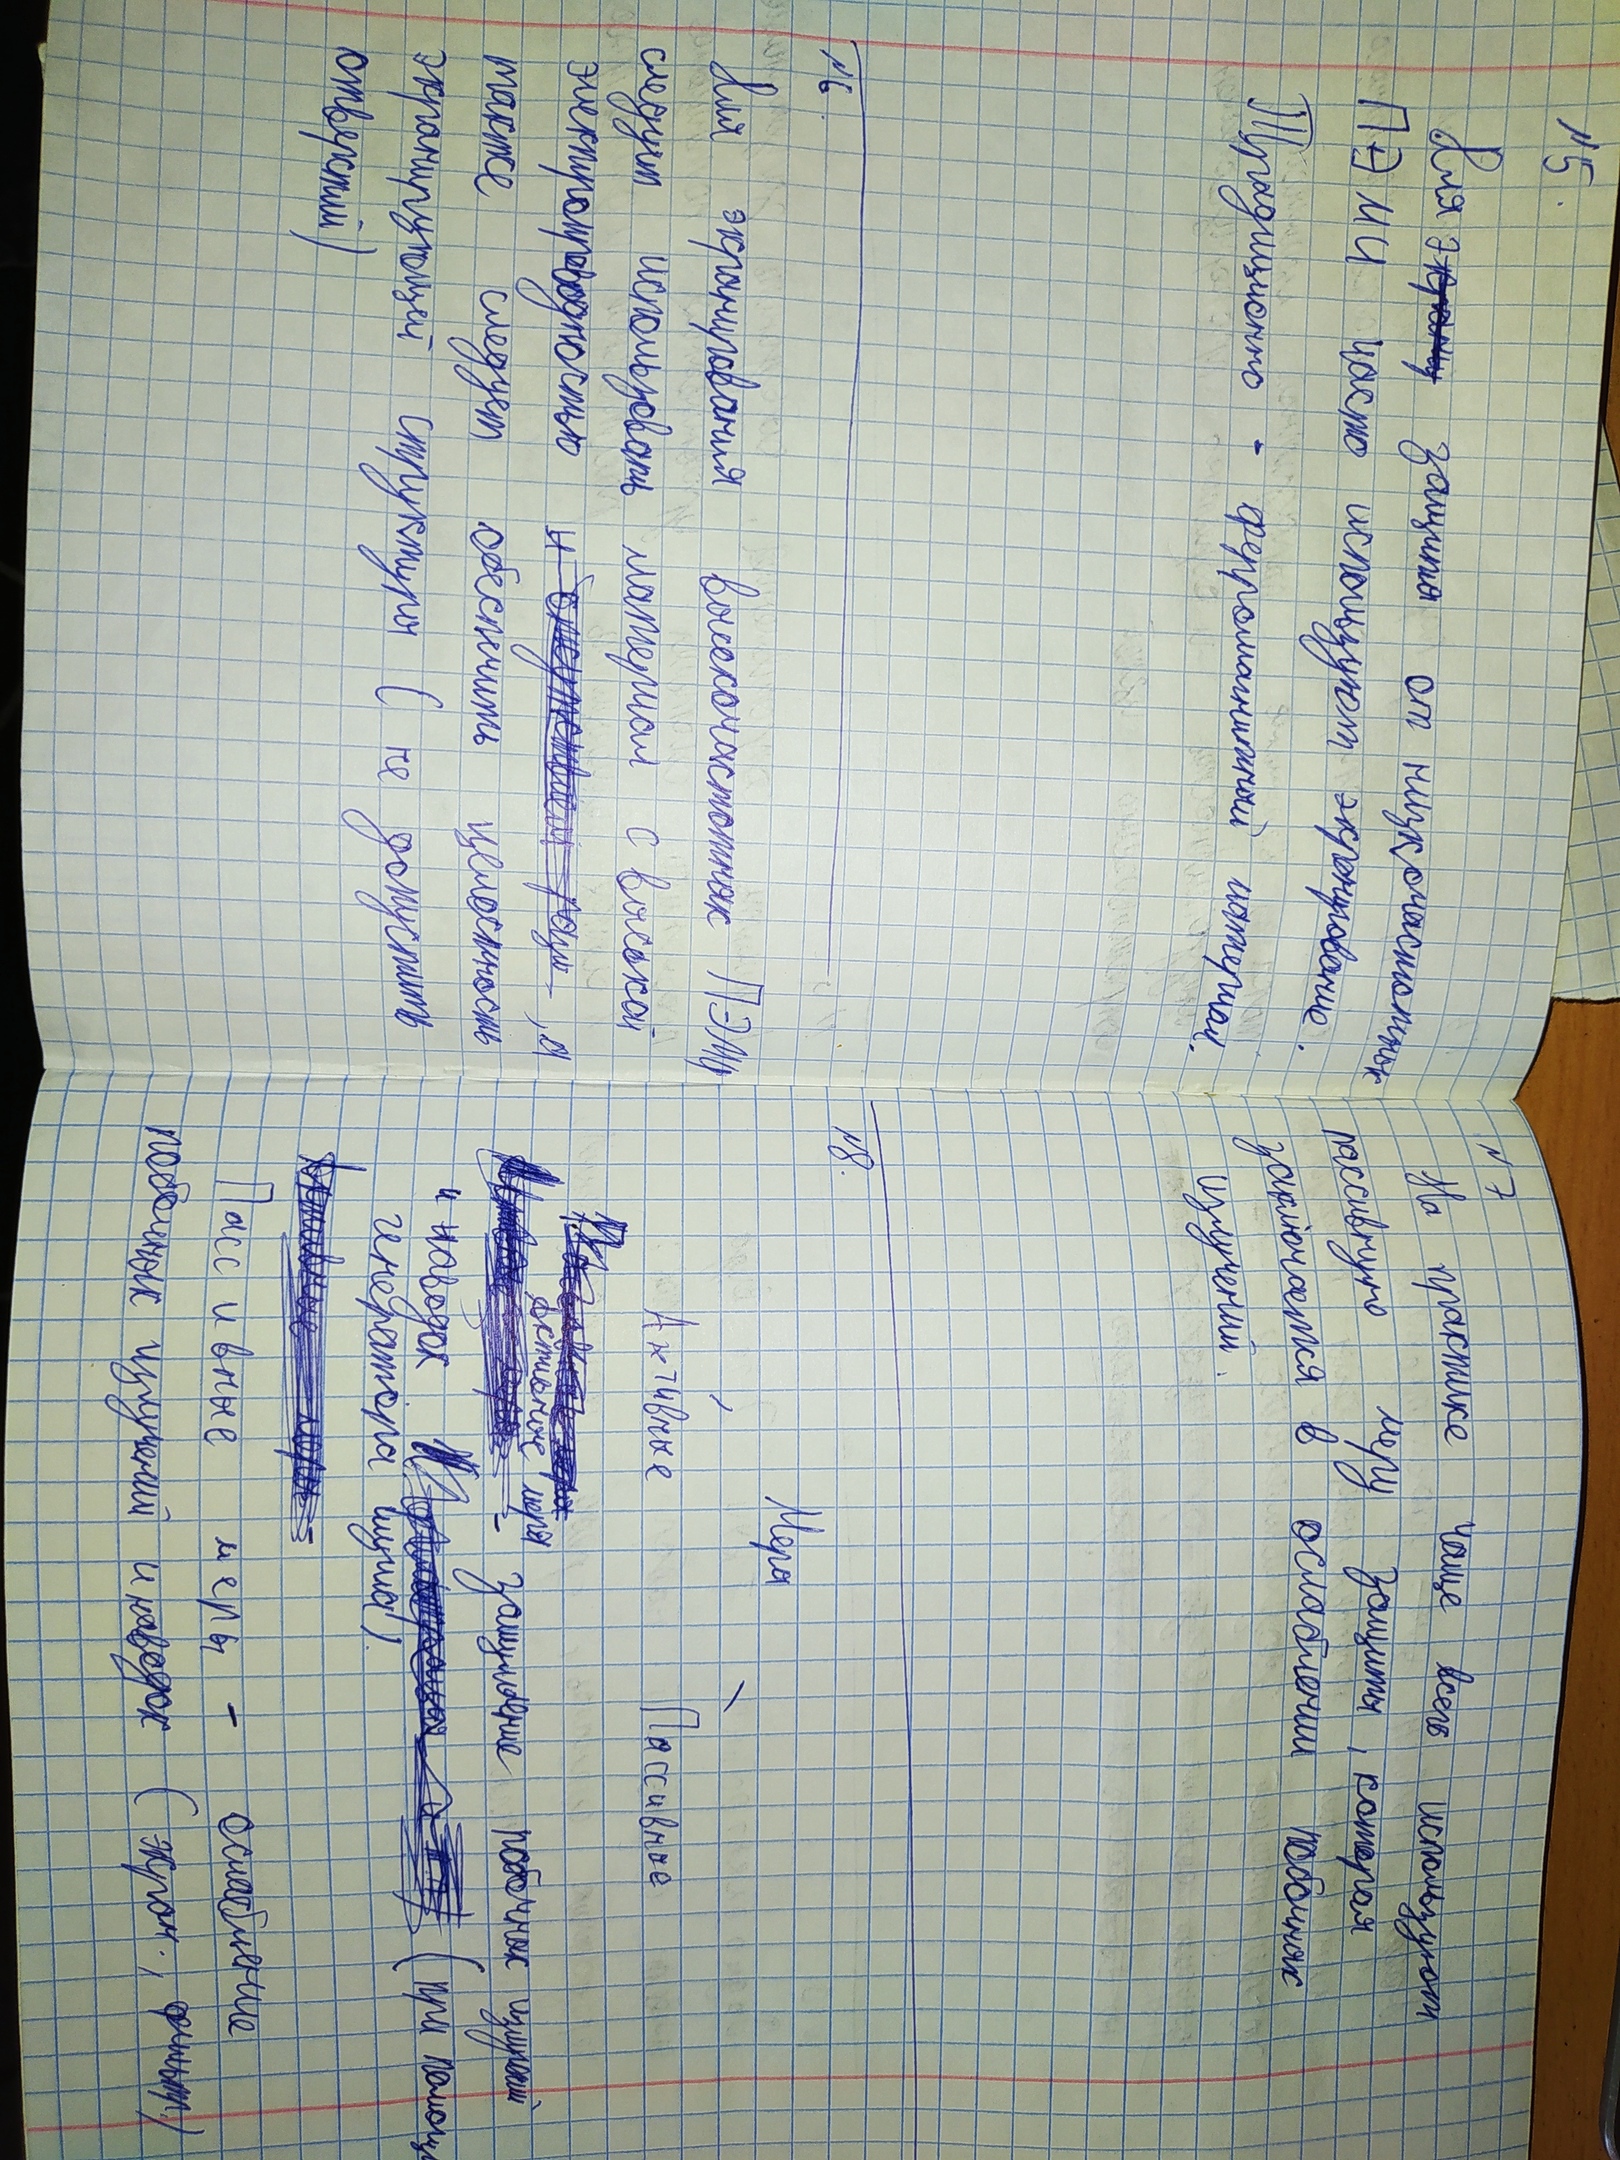 №5.
Для защиты от низкочастотных
ПЭМИ часто используют экранирование.
Традиционно - ферромагнитный материал.
№6.
Для экранирования высокочастотных ПЭМИ
следует использовать материал с высокой
электропроводностью , а
также следует обеспечить целостность
экранирующей структуры ( не допустить
отверстий)
№7
На практике чаще всего используют
пассивную меру защиты, которая
заключается в ослаблении побочных
излучений.
№8.
Меры
Активные Пассивные
Активные меры
- зашумление побочных излучений
и наводок (при помощи
генератора шума).
Пассивные меры - ослабление
побочных излучений и наводок (экран., фильт.)